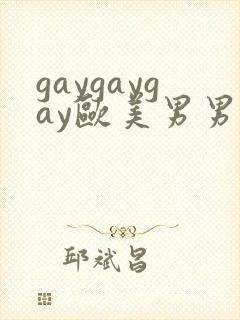 gaygayg
ay歐美男男
邱斌昌